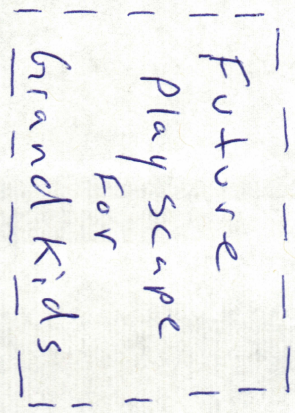 Future
Playscape
For
Grandkids